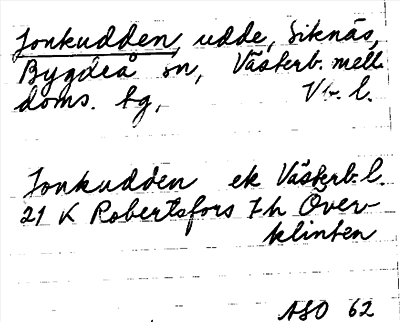 Jonkudden, udde, Siknäs,
Bygdeå sn, Västerb. mell.
doms. tg, Vb. l.
Jonkudden ek Västerb. l.
21 K Robertsfors 7h Över-
klinten
ASO 62